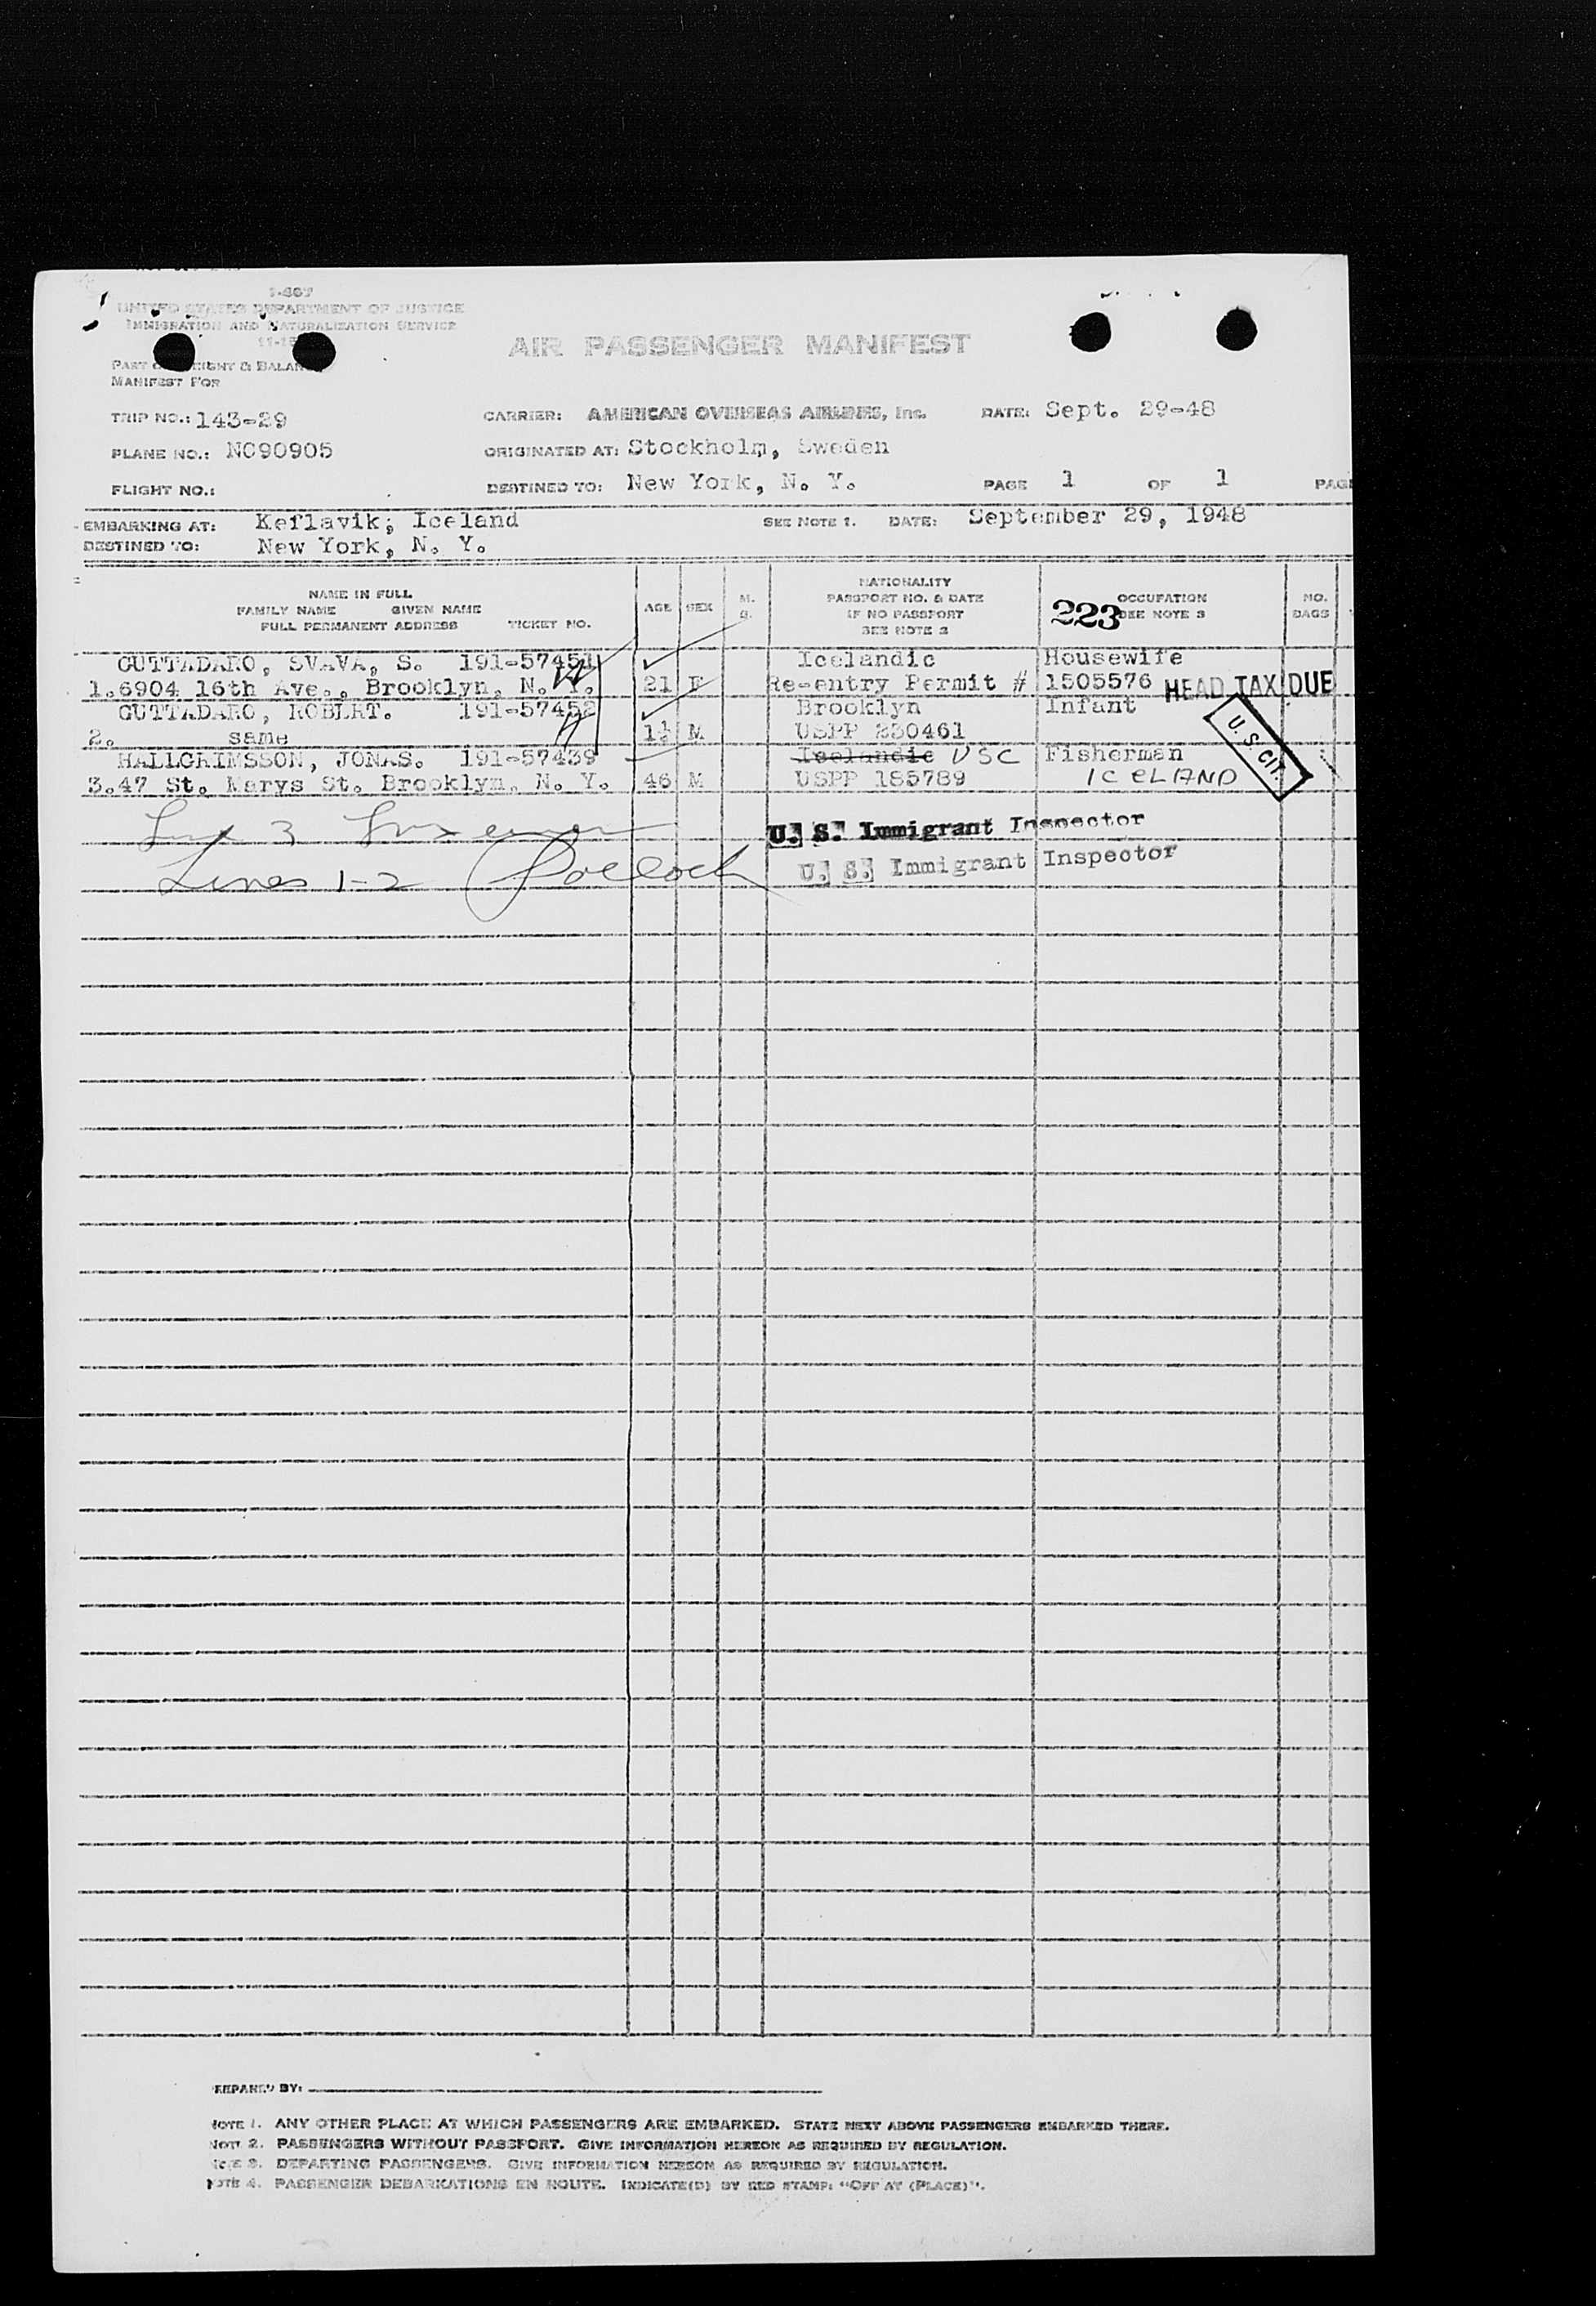 I-467
UNITED STATES DEPARTMENT OF JUSTICE
IMMIGRATION AND NATURALIZATION SERVICE
AIR PASSENGER MANIFEST
MANIFEST FOR
TRIP NO.: 143-29 CARRIER: AMERICAN OVERSEAS AIRLINES, Inc. DATE: Sept. 29-48
PLANE NO.: NC90905 ORIGINATED AT: Stockholm, Sweden
FLIGHT NO.: DESTINED TO: New York, N. Y. PAGE 1 OF 1
EMBARKING AT: Keflavik, Iceland SEE NOTE 1. DATE: September 29, 1948
DESTINED TO: New York, N. Y.
NAME IN FULL
FAMILY NAME GIVEN NAME
FULL PERMANENT ADDRESS TICKET NO.
AGE SEX
NATIONALITY
PASSPORT NO. & DATE
IF NO PASSPORT
SEE NOTE 2
223 OCCUPATION
SEE NOTE 3
NO.
BAGS
GUTTADARO, SVAVA, S. 191-57451 Icelandic Housewife
1. 6904 16th Ave., Brooklyn, N. Y. 21 F Re-entry Permit # 1505576 HEAD TAX DUE
GUTTADARO, ROBERT. 191-57452 Brooklyn Infant
2. same 1½ M USPP 230461 U. S. CIT.
HALLGRIMSSON, JONAS. 191-57439 Icelandic USC Fisherman
3. 47 St. Marys St. Brooklyn, N. Y. 46 M USPP 185789 ICELAND
U. S. Immigrant Inspector
Lines 1-2 Pollock U. S. Immigrant Inspector
PREPARED BY:
NOTE 1. ANY OTHER PLACE AT WHICH PASSENGERS ARE EMBARKED. STATE NEXT ABOVE PASSENGERS EMBARKED THERE.
NOTE 2. PASSENGERS WITHOUT PASSPORT. GIVE INFORMATION HEREON AS REQUIRED BY REGULATION.
NOTE 3. DEPARTING PASSENGERS. GIVE INFORMATION HEREON AS REQUIRED BY REGULATION.
NOTE 4. PASSENGER DEBARKATIONS EN ROUTE. INDICATE(D) BY RED STAMP: "OFF AT (PLACE)".